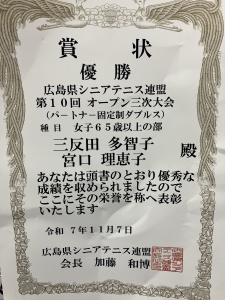 賞状
優勝
広島県シニアテニス連盟
第10回 オープン三次大会
(パートナー固定制ダブルス)
種目 女子65歳以上の部
三反田 多智子
宮口 理恵子 殿
あなたは頭書のとおり優秀な
成績を収められましたので
ここにその栄誉を称へ表彰
いたします
令和 7年11月7日
広島県シニアテニス連盟
会長 加藤 和博